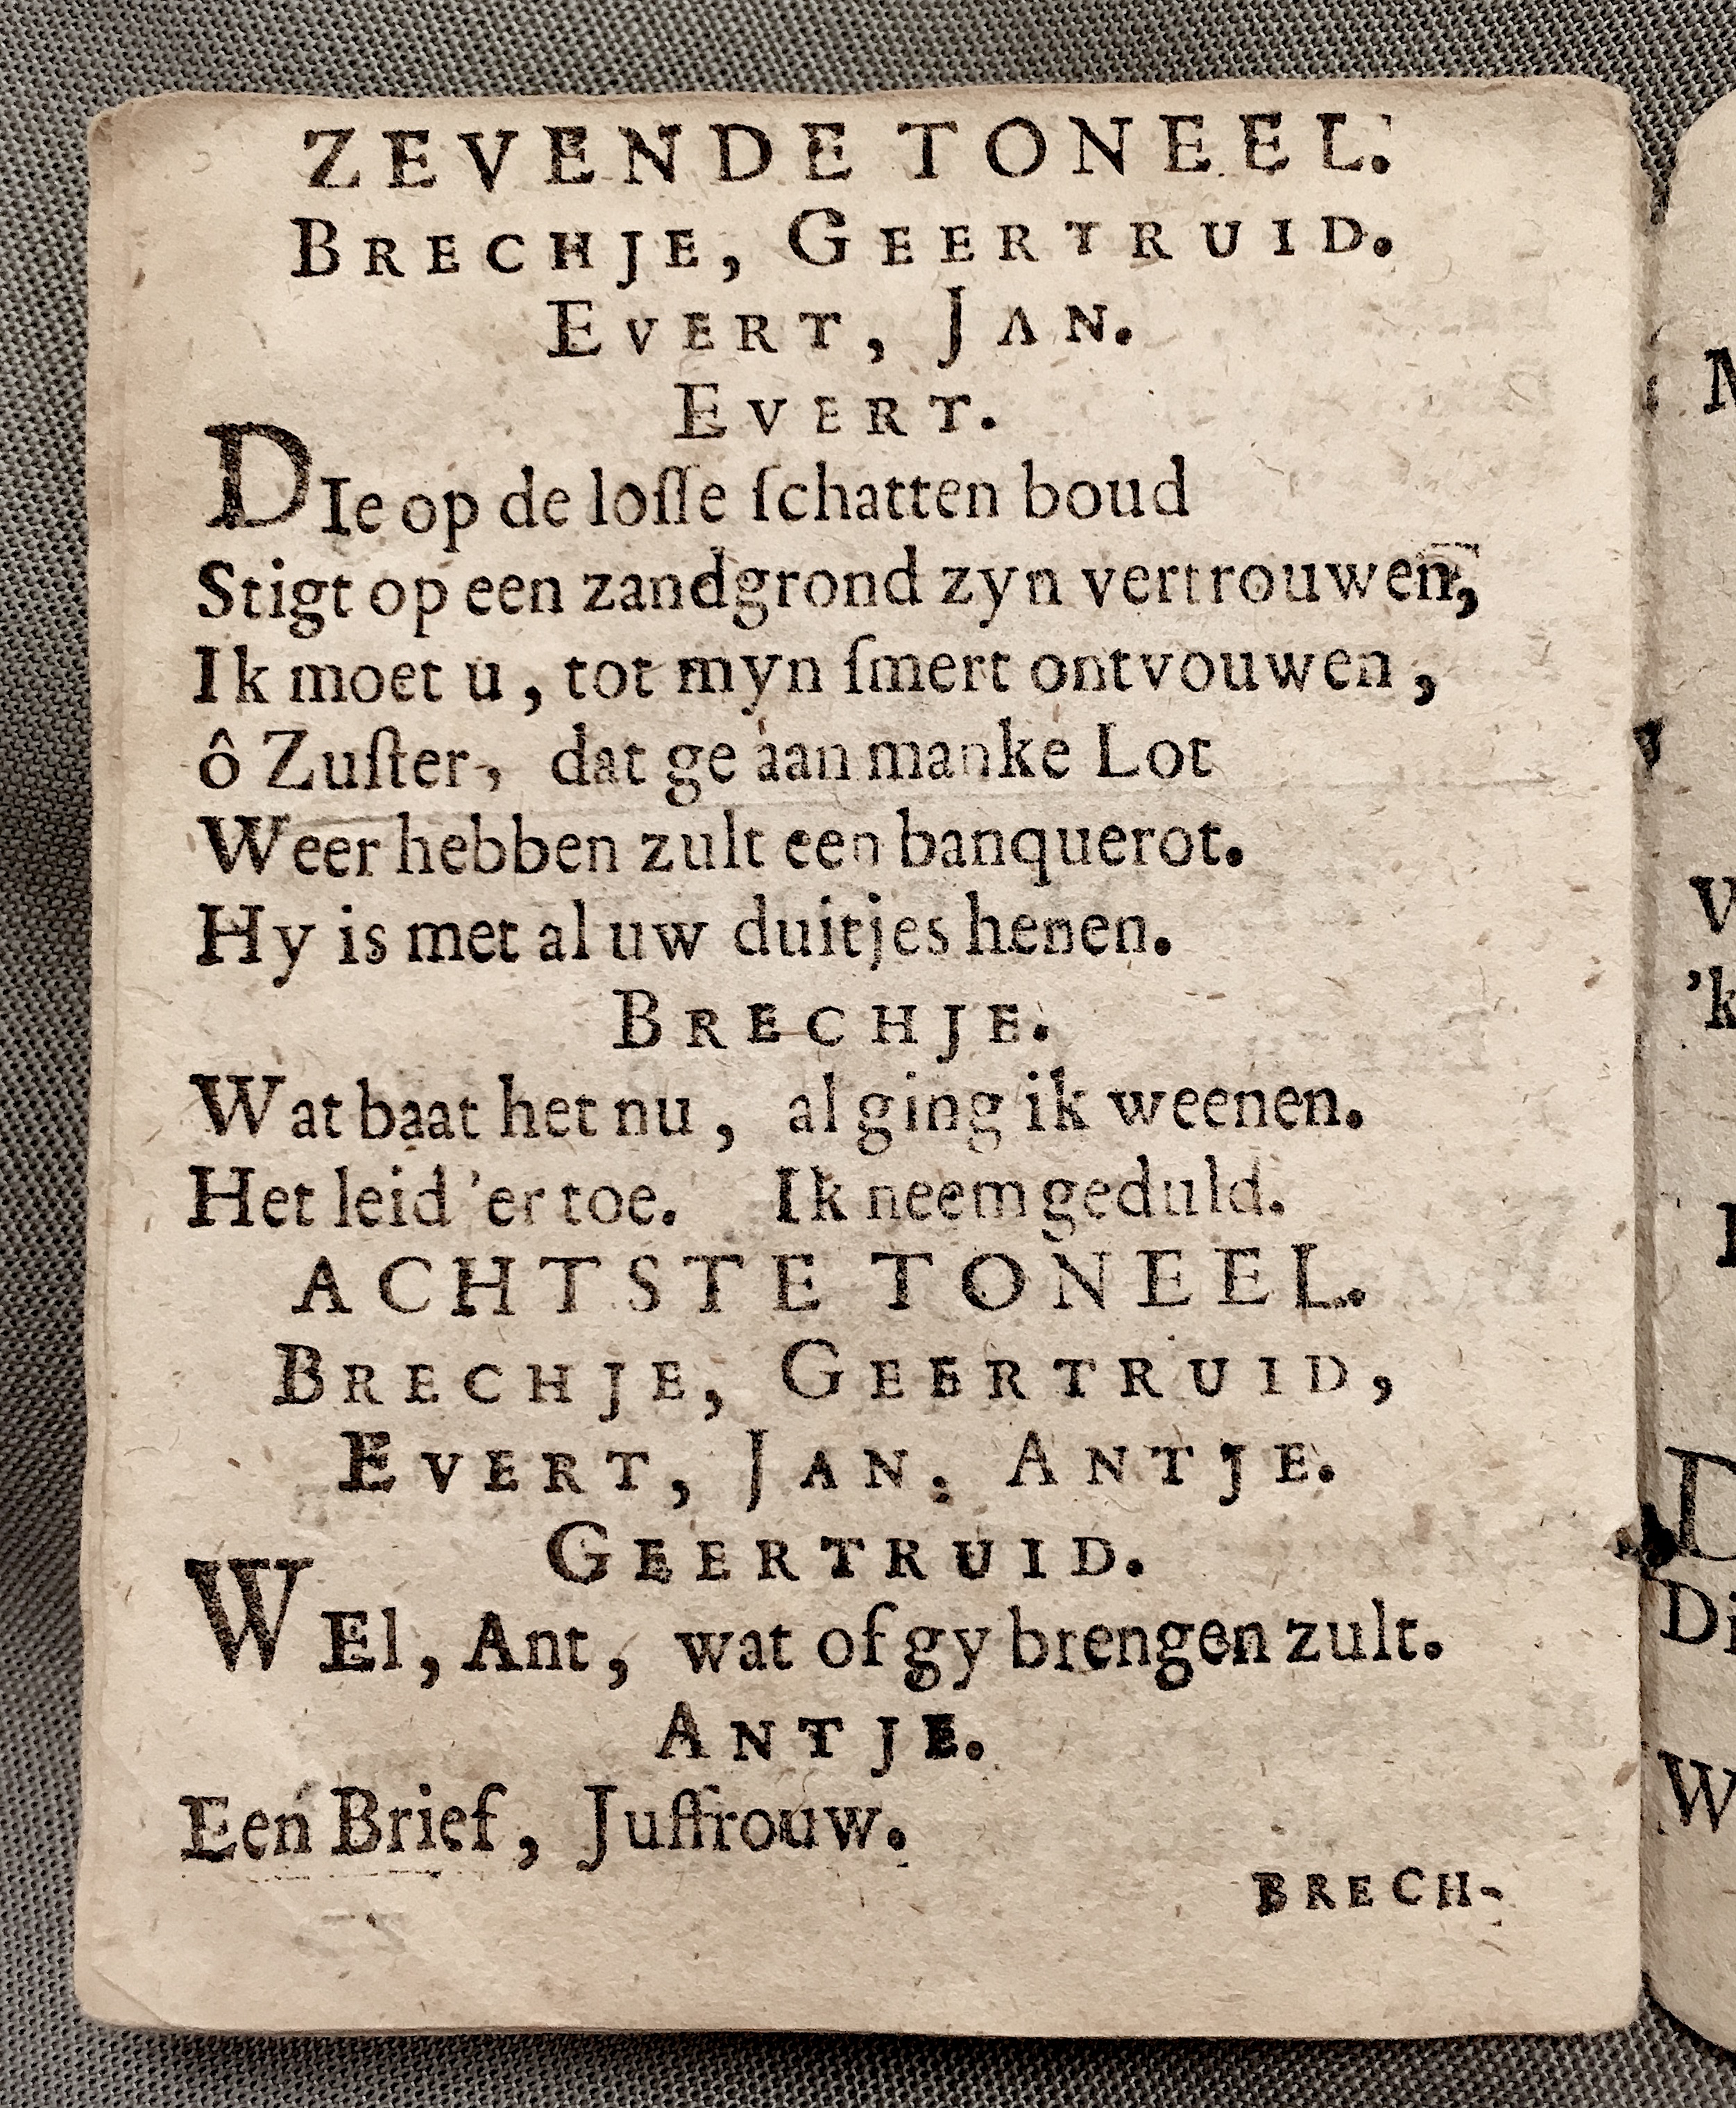 ZEVENDE TONEEL.
BRECHJE, GEERTRUID.
EVERT, JAN.
EVERT.
DIe op de loſſe ſchatten boud
Stigt op een zandgrond zyn vertrouwen,
Ik moet u, tot myn ſmert ontvouwen,
ô Zuſter, dat ge aan manke Lot
Weer hebben zult een banquerot.
Hy is met al uw duitjes henen.
BRECHJE.
Wat baat het nu, al ging ik weenen.
Het leid 'er toe. Ik neem geduld.
ACHTSTE TONEEL.
BRECHJE, GEERTRUID,
EVERT, JAN. ANTJE.
GEERTRUID.
WEl, Ant, wat of gy brengen zult.
ANTJE.
Een Brief, Juffrouw.
BRECH-